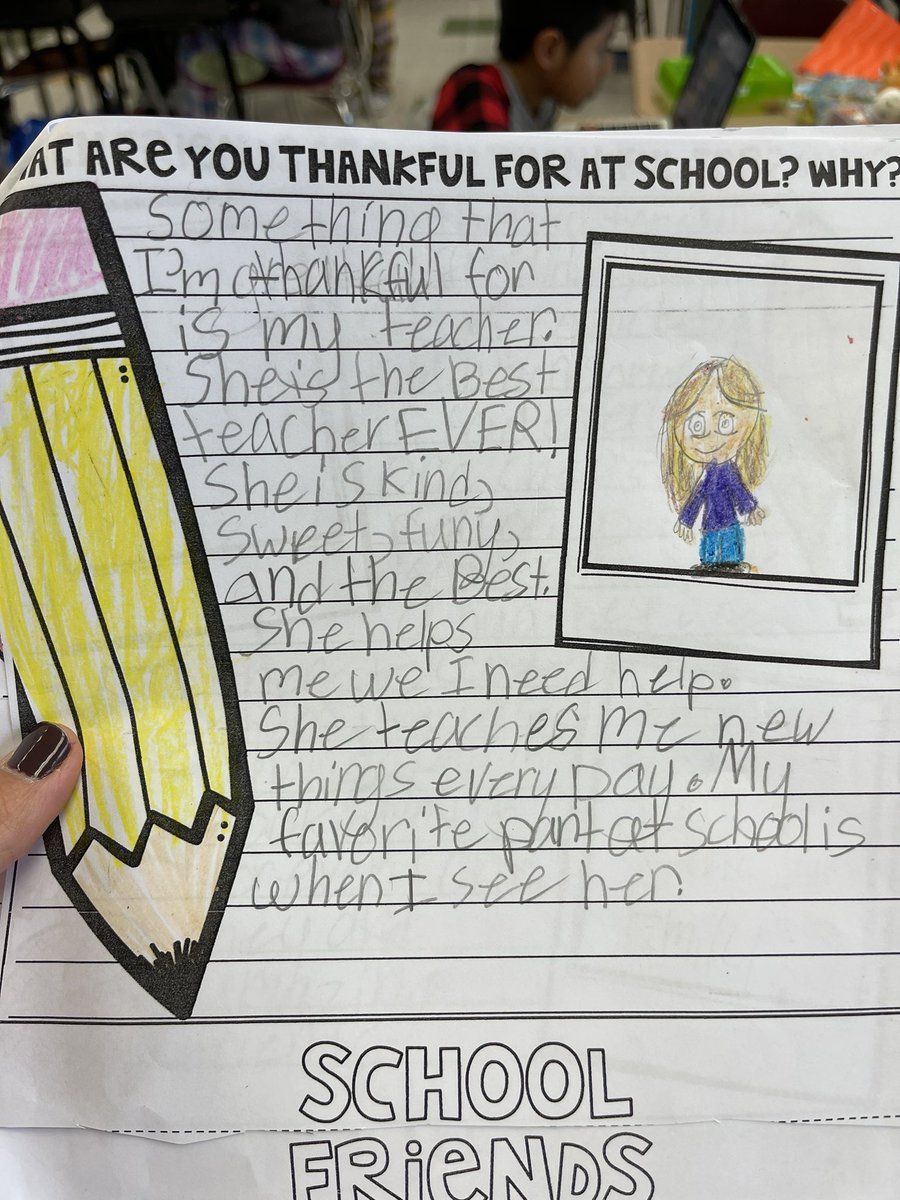 AT ARE YOU THANKFUL FOR AT SCHOOL? WHY?
Something that
I'm thankful for
is my teacher.
She is the Best
teacher EVER!
She is kind,
sweet, funy,
and the Best.
She helps
me we I need help.
She teaches me new
things every Day. My
favorite part at school is
when I see her.
SCHOOL
FRIENDS